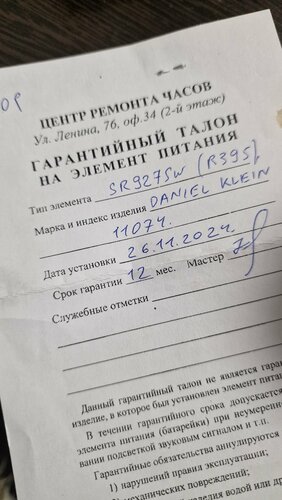 ЦЕНТР РЕМОНТА ЧАСОВ
Ул. Ленина, 76, оф.34 (2-й этаж)
ГАРАНТИЙНЫЙ ТАЛОН
НА ЭЛЕМЕНТ ПИТАНИЯ
Тип элемента SR927SW (R395)
Марка и индекс изделия DANIEL KLEIN
11074.
Дата установки 26.11.2024.
Срок гарантии 12 мес. Мастер
Служебные отметки
Данный гарантийный талон не является гаран
изделие, в котором был установлен элемент питан
В течении гарантийного срока допускается
элемента питания (батарейки) при неумерен
вании подсветкой звуковым сигналом и т.п.
Гарантийные обязательства аннулируются
1) нарушений правил эксплуатации;
2) механических повреждений;
изделия водой или др